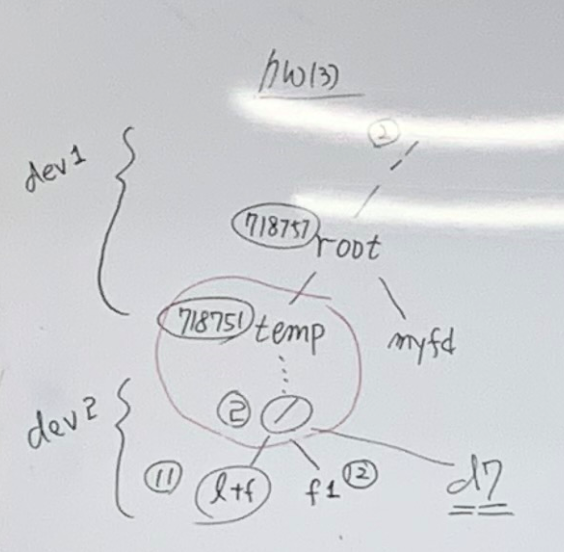 hw(3)
2
dev1
718757 root
718751 temp
myfd
dev2
2 /
11 l+f f1 12 d7